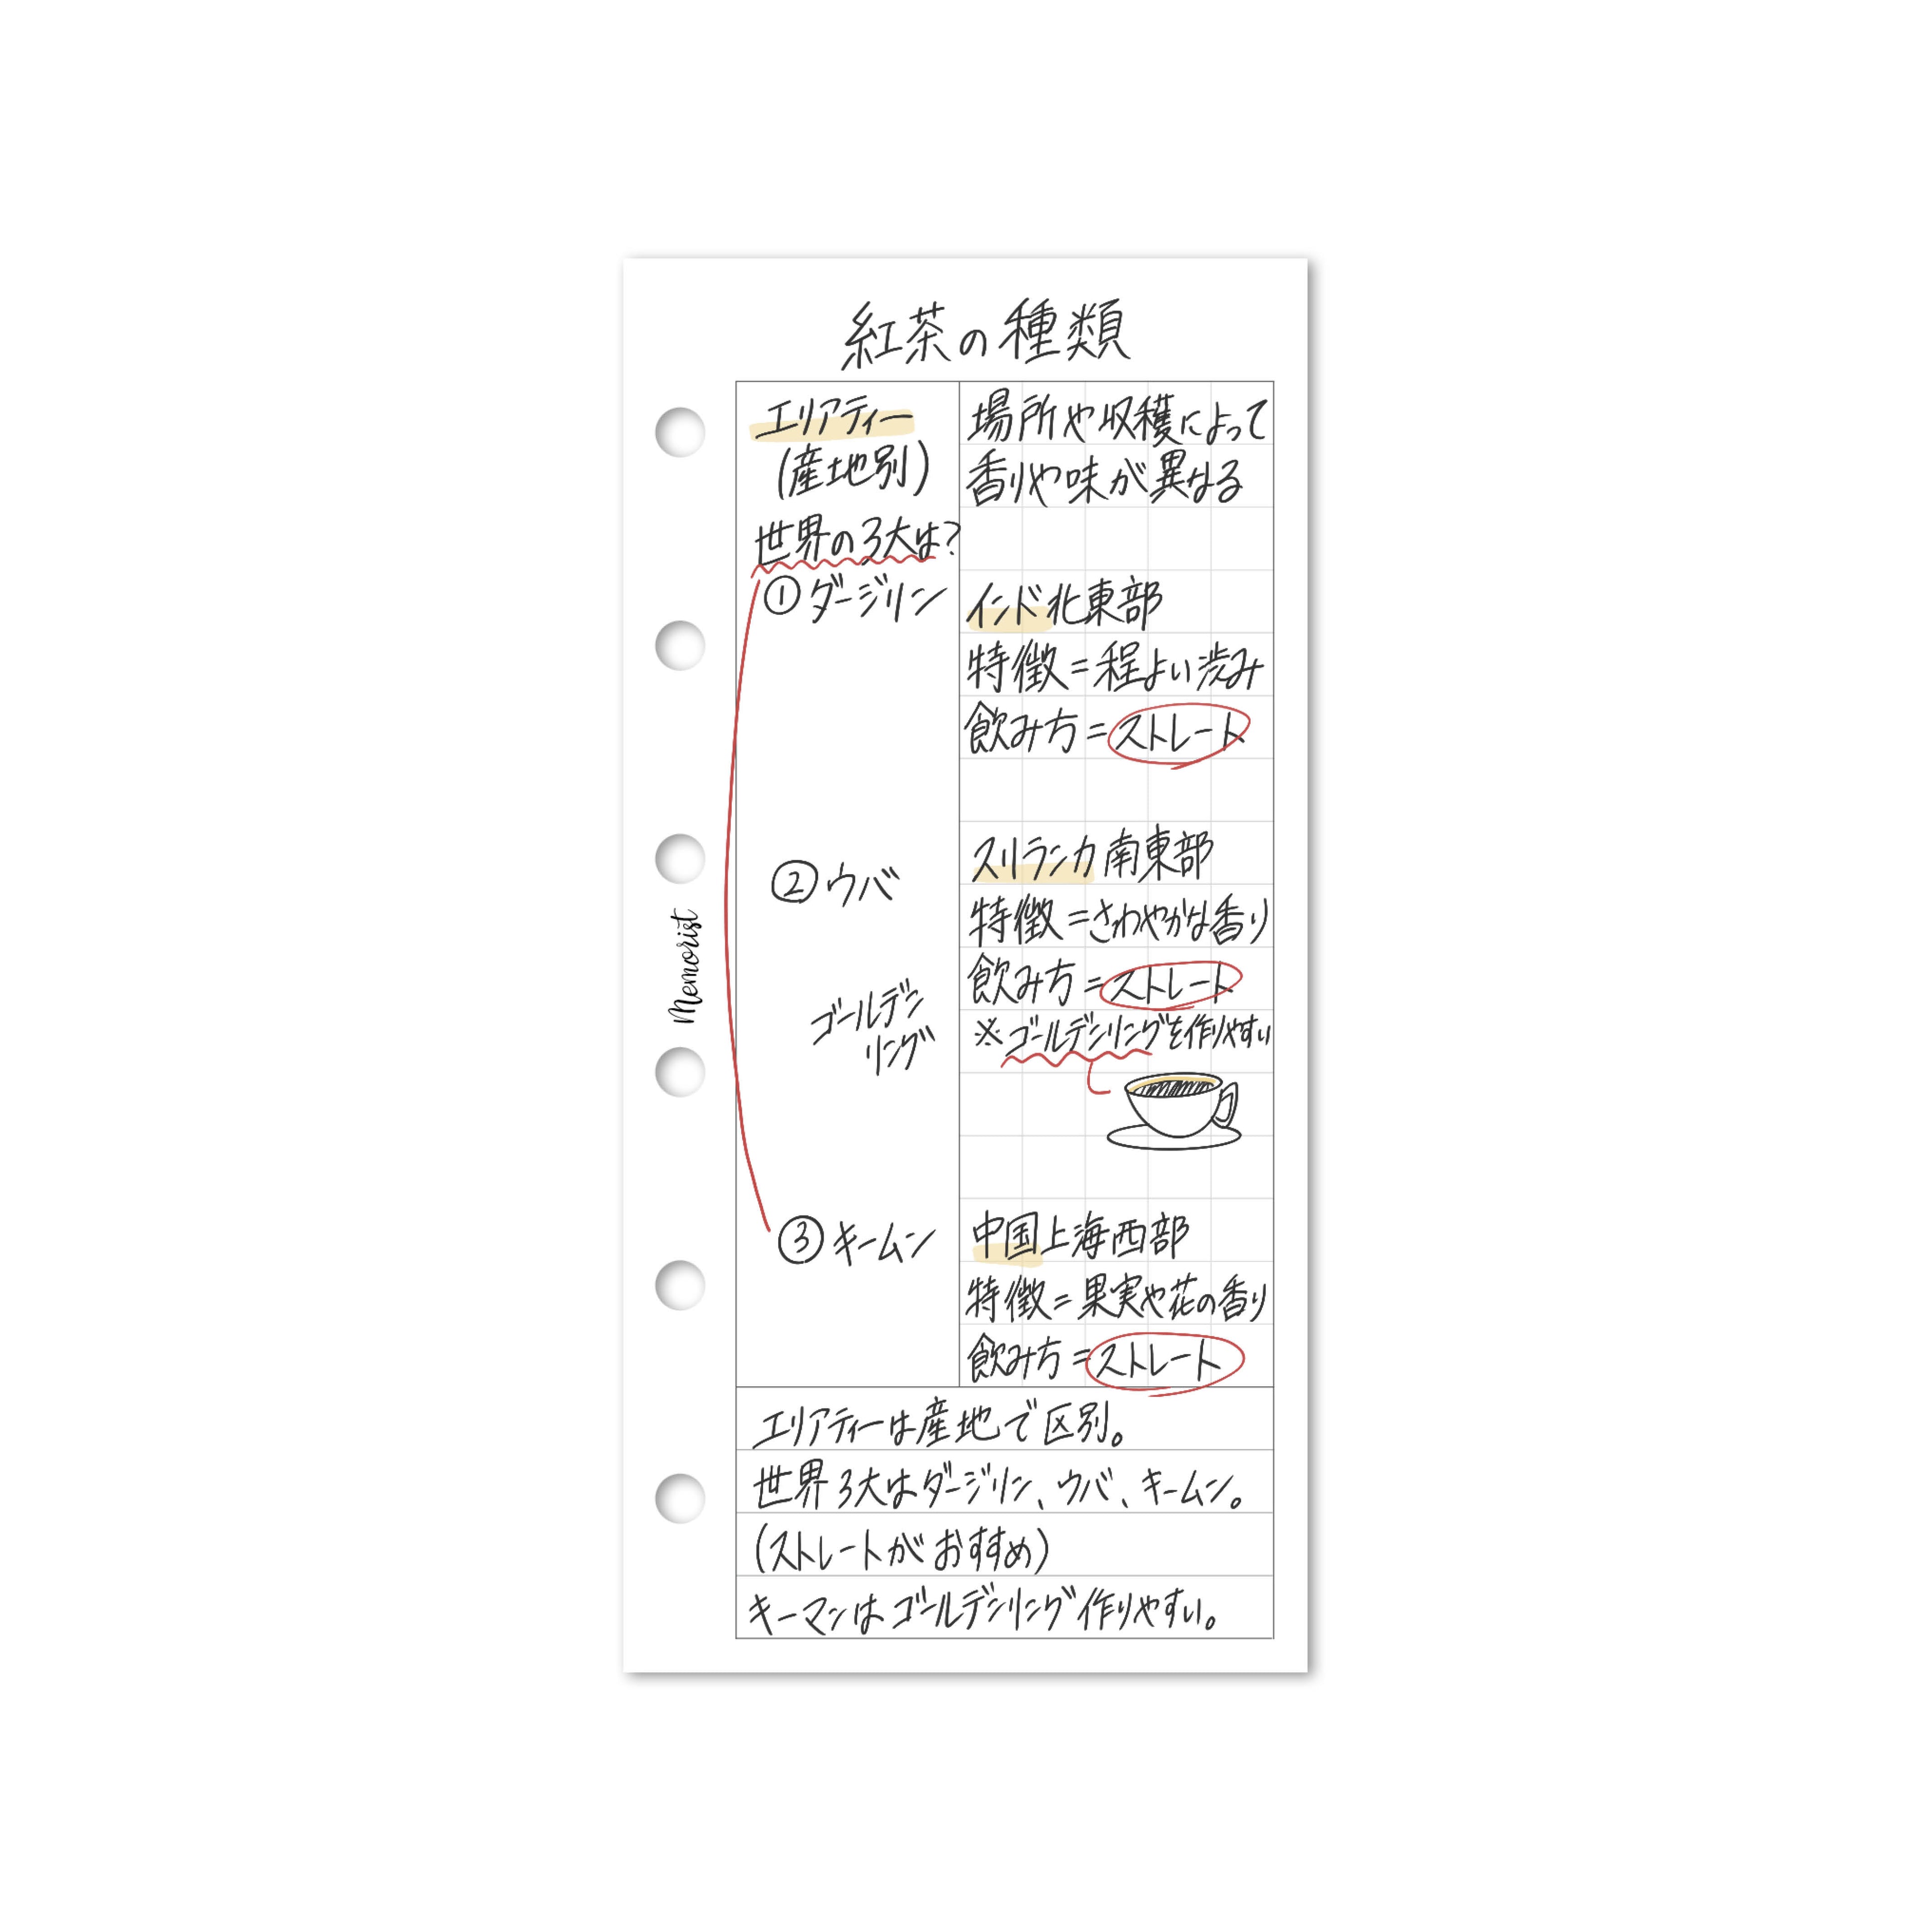 紅茶の種類
エリアティー
(産地別)
世界の3大は?
場所や収穫によって
香りや味が異なる
①ダージリン
インド北東部
特徴=程よい渋み
飲み方=ストレート
②ウバ
スリランカ南東部
特徴=さわやかな香り
飲み方=ストレート
ゴールデン
リング
※ゴールデンリングを作りやすい
③キームン
中国上海西部
特徴=果実や花の香り
飲み方=ストレート
エリアティーは産地で区別。
世界3大はダージリン、ウバ、キームン。
(ストレートがおすすめ)
キーマンはゴールデンリング作りやすい。
Memorist